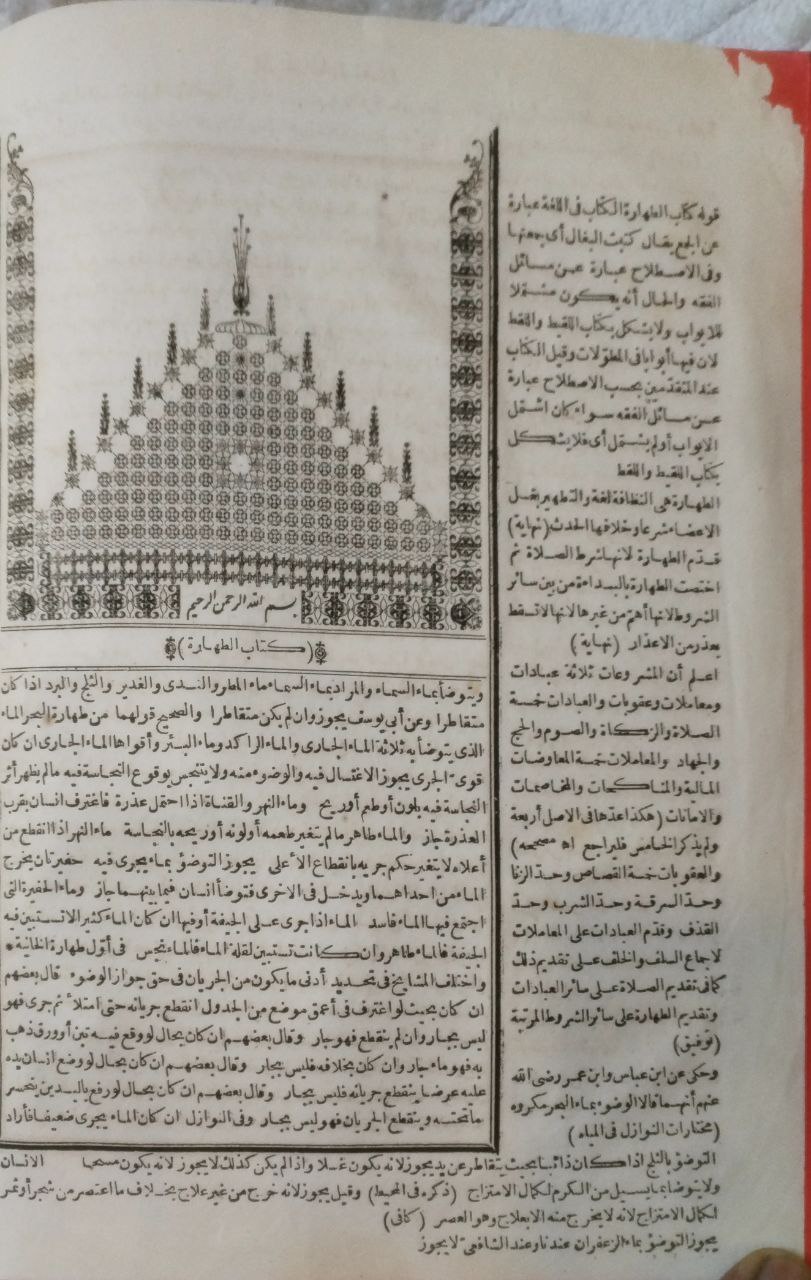 بسم الله الرحمن الرحيم
(كتاب الطهارة)
ويتوضأ بماء السماء والمراد بماء السماء ماء المطر والندى والغدير والثلج والبرد اذا كان
متقاطرا وعن أبي يوسف يجوز وان لم يكن متقاطرا والصحيح قولهما من طهارة البحر الماء
الذى يتوضأ به ثلاثة الماء الجارى والماء الراكد وماء البئر وأقواها الماء الجارى ان كان
قوى الجرى يجوز الاغتسال فيه والوضوء منه ولا يتنجس بوقوع النجاسة فيه ما لم يظهر أثر
النجاسة فيه بلون أو طعم أو ريح وماء النهر والقناة اذا احتمل عذرة فاغترف انسان بقرب
العذرة جاز والماء طاهر ما لم يتغير طعمه أو لونه أو ريحه بالنجاسة ماء النهر اذا انقطع من
أعلاه لا يتغير حكم جريه بانقطاع الأعلى يجوز التوضؤ بماء يجرى فيه حفيرتان يخرج
الماء من احداهما ويدخل فى الاخرى فتوضأ انسان فيما بينهما جاز وماء الحفيرة التى
اجتمع فيها الماء فاسد الماء اذا جرى على الجيفة أو فيها ان كان الماء كثيرا لا تستبين فيه
الجيفة فالماء طاهر وان كانت تستبين لقلة الماء فالماء نجس فى أول طهارة الخانية *
واختلف المشايخ فى تحديد أدنى ما يكون من الجريان فى حق جواز الوضوء قال بعضهم
ان كان بحيث لو اغترف فى أعمق موضع من الجدول انقطع جريانه حتى امتلأ ثم جرى فهو
ليس بجار وان لم ينقطع فهو جار وقال بعضهم ان كان بحال لو وقع فيه تبن أو ورق ذهب
به فهو ماء جار وان كان بخلافه فليس بجار وقال بعضهم ان كان بحال لو وضع انسان يده
عليه عرضا ينقطع جريانه فليس بجار وقال بعضهم ان كان بحال لو رفع باليدين ينحسر
ما تحته وينقطع الجريان فهو ليس بجار وفى النوازل ان كان الماء يجرى ضعيفا فأراد
قوله كتاب الطهارة الكتاب فى اللغة عبارة
عن الجمع يقال كتبت البغال أى جمعتها
وفى الاصطلاح عبارة عن مسائل
الفقه والحال أنه يكون مشتملا
للابواب ولا يشكل بكتاب اللقيط واللقط
لان فيها أبوابا فى المطولات وقيل الكتاب
عند المتقدمين بحسب الاصطلاح عبارة
عن مسائل الفقه سواء كان اشتمل
الابواب أو لم يشتمل أى فلا يشكل
بكتاب اللقيط واللقط
الطهارة هى النظافة لغة والتطهير بغسل
الاعضاء شرعا وخلافها الحدث (نهاية)
قدم الطهارة لانها شرط الصلاة ثم
اختصت الطهارة بالبداءة من بين سائر
الشروط لانها أهم من غيرها لانها لا تسقط
بعذر من الاعذار (نهاية)
اعلم أن المشروعات ثلاثة عبادات
ومعاملات وعقوبات والعبادات خمسة
الصلاة والزكاة والصوم والحج
والجهاد والمعاملات خمسة المعاوضات
المالية والمناكحات والمخاصمات
والامانات (هكذا عدها فى الاصل أربعة
ولم يذكر الخامس فليراجع اه مصححه)
والعقوبات خمسة القصاص وحد الزنا
وحد السرقة وحد الشرب وحد
القذف وقدم العبادات على المعاملات
لاجماع السلف والخلف على تقديم ذلك
كما فى تقديم الصلاة على سائر العبادات
وتقديم الطهارة على سائر الشروط المرتبة
(توفيق)
وحكى عن ابن عباس وابن عمر رضى الله
عنهم أنهما قالا الوضوء بماء البحر مكروه
(مختارات النوازل فى المياه)
التوضؤ بالثلج اذا كان ذائبا بحيث يتقاطر عن يد يجوز لانه يكون غسلا واذا لم يكن كذلك لا يجوز لانه يكون مسحا الانسان
ولا يتوضأ بما يسيل من الكرم لكمال الامتزاج (ذكره فى المحيط) وقيل يجوز لانه خرج من غير علاج بخلاف ما اعتصر من شجر أو ثمر
لكمال الامتزاج لانه لا يخرج منه الا بعلاج وهو العصر (كافى)
يجوز التوضؤ بماء الزعفران عندنا وعند الشافعى لا يجوز